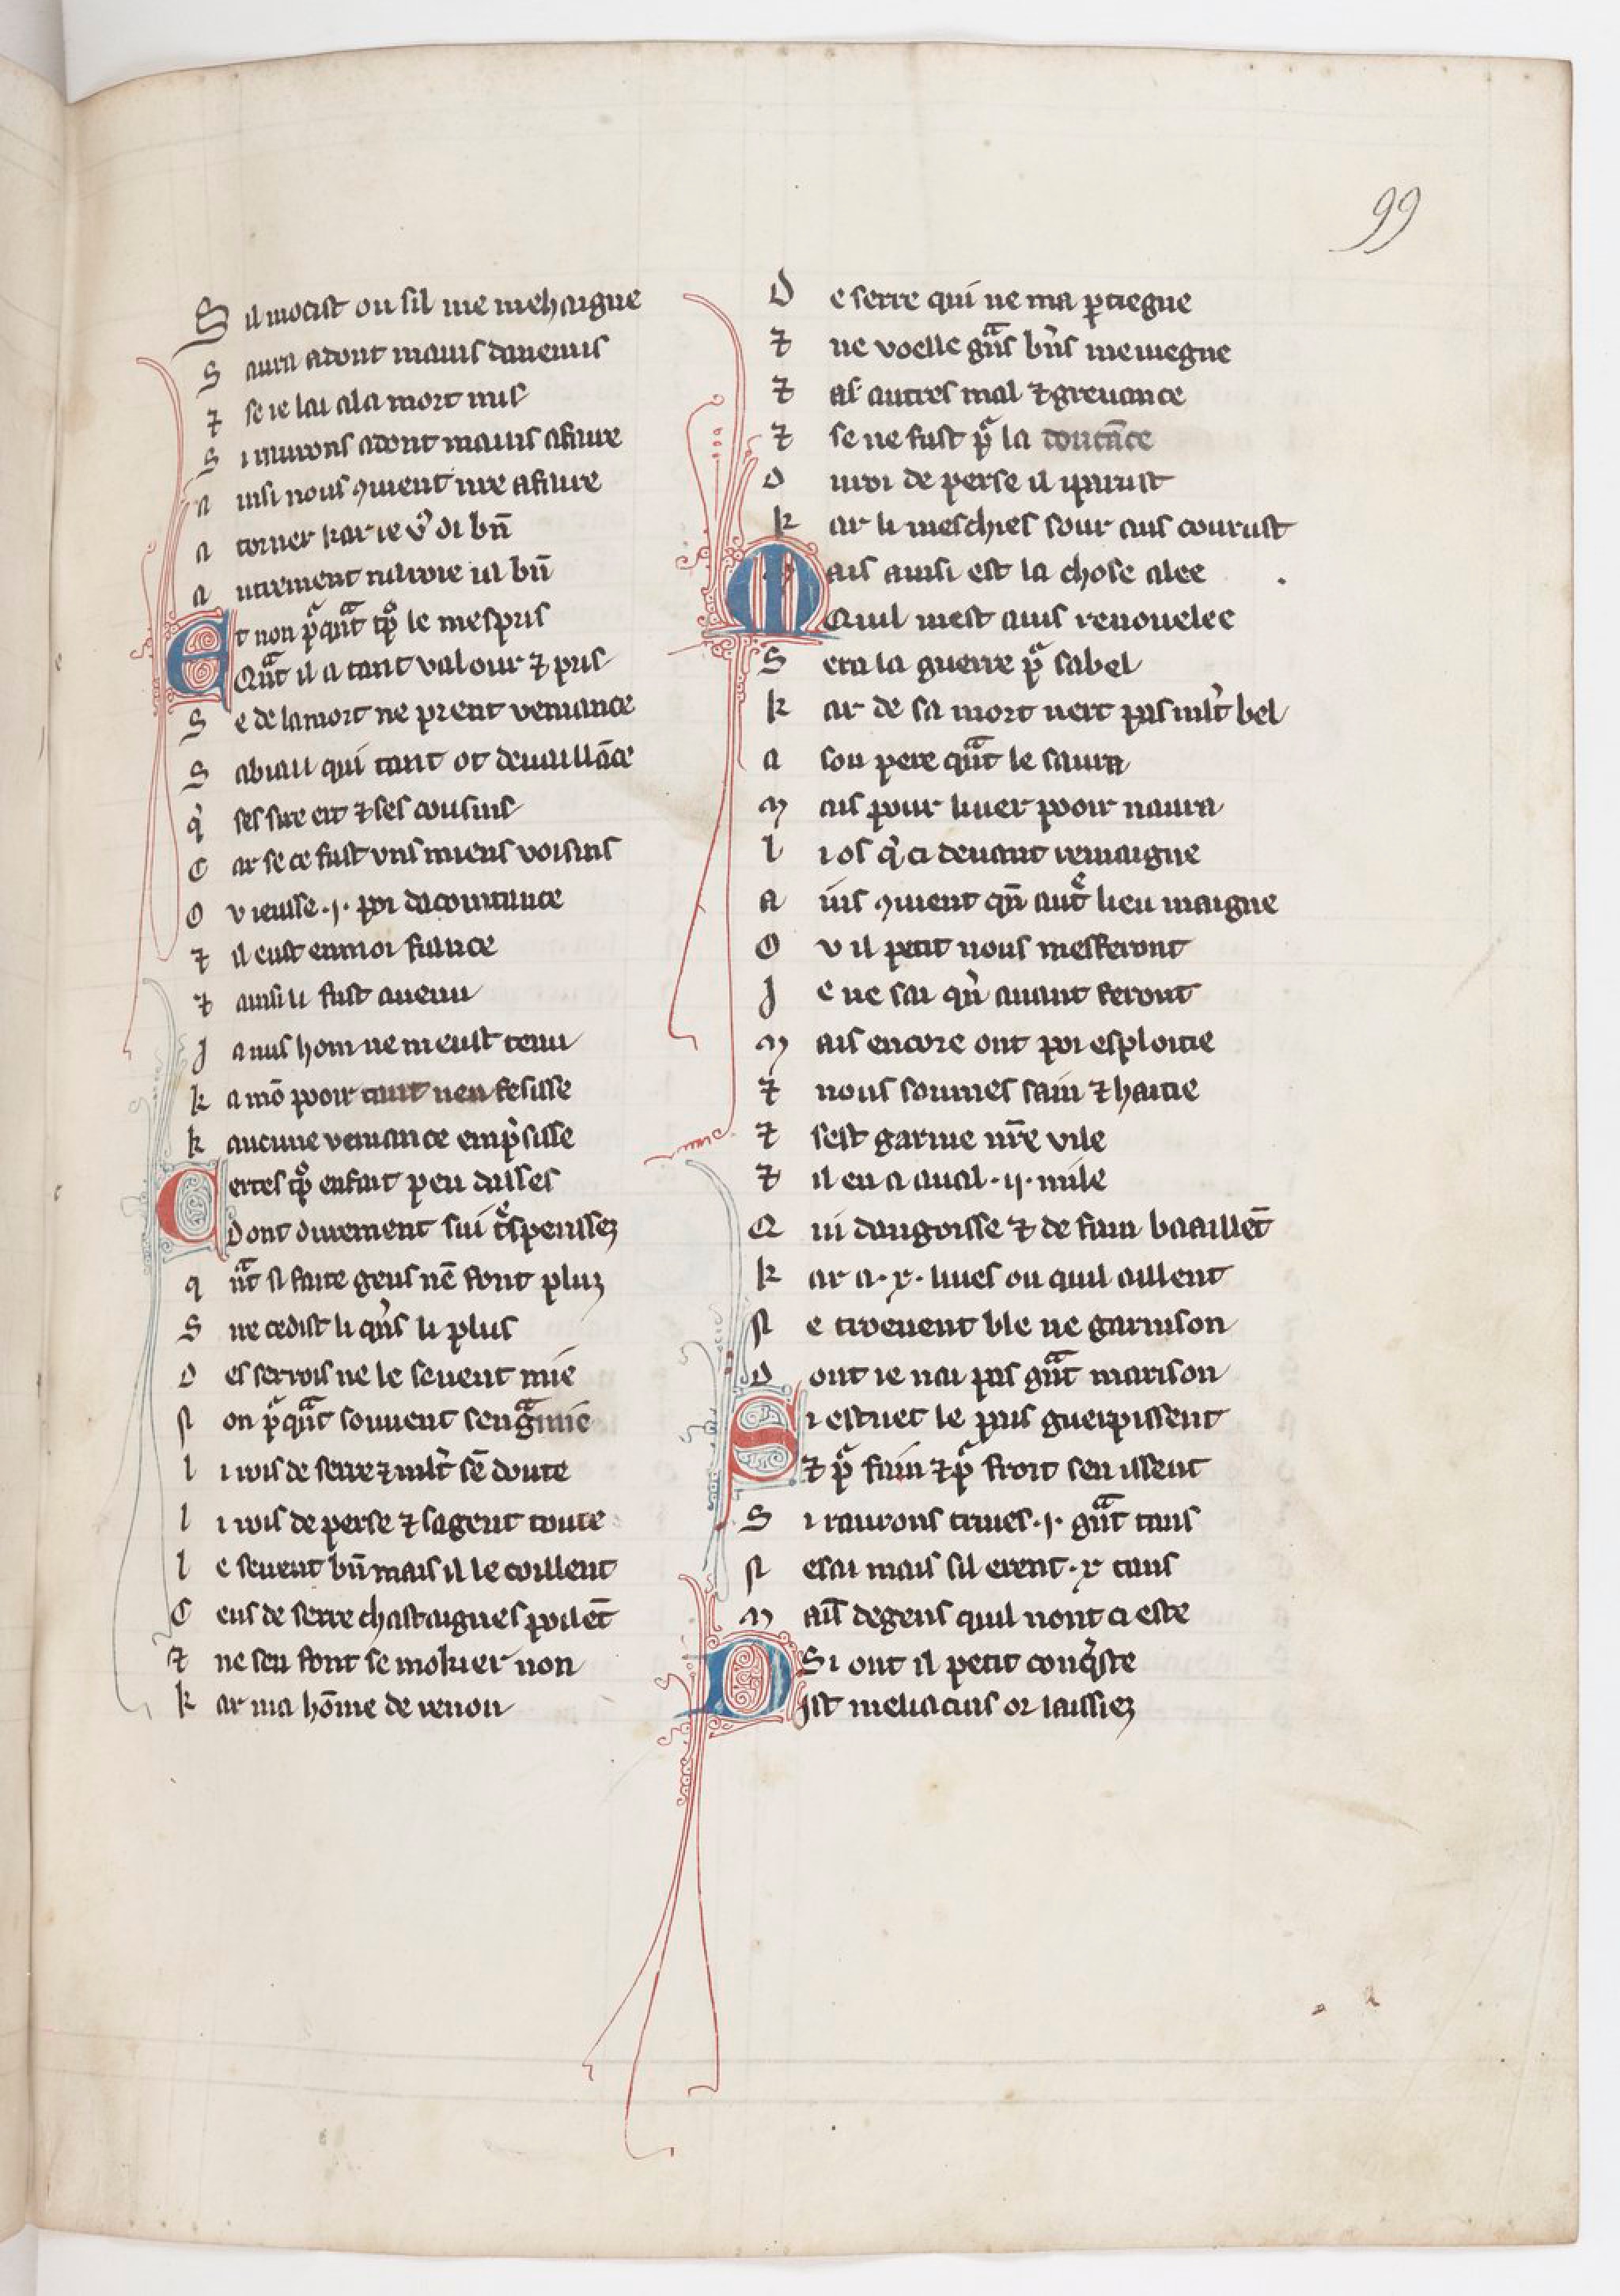 99
S il mocist ou sil me mehaigne
S aura adont mauis dauenus
⁊ se ie lai ala mort mis
S i murons adont mauis afaire
A insi nous ꝯuient nr̄e afaire
A torner kar ie vͦ di bn̄
A utrement nawie ia bn̄
Et non pᵃqᵃnt tͦp le mespris
Qᵃnt il a tant valour ⁊ pris
S e de la mort ne prent veniance
S abiau qui tant ot deuaillāce
Qͥ ses sire ert ⁊ ses cousins
C ar se ce fust vns miens voisins
O v ieusse .j. poi dacointance
⁊ il eust enmoi fiance
⁊ ainsi li fust auenu
J amis hom ne meust tenu
K a mō pooir tant nen fesisse
K aucune veniance empͥsisse
Certes tͦp enfant peu dasses
Dont durement sui tͬespensez
Qᵃnt si faite gens nē font pluz
S ne cedist li qͥns li plus
D es serrois ne le seuent mie
N on pᵃqᵃnt souuent sengᵃmie
L i rois de serre ⁊ ml̄t sē doute
L i rois de perse ⁊ sa gent toute
L e seuent bn̄ mais il le coillent
C eus de serre chastaignes poilēt
⁊ ne seu font se mokier non
K ar ma hōme de renon
D e serre qui ne ma ꝑtiegne
⁊ ne voelle gᵃns bn̄s meuiegne
⁊ as autres mal ⁊ greuance
⁊ se ne fust pᵃ la doutāce
D u roi de perse il iparust
K ar li meschies sour aus courust
Mais ainsi est la chose alee
Quil mest auis renouelee
S era la guerre pᵃ sabel
K ar de sa mort nert pas ml̄t bel
A son pere qᵃnt le saura
M ais pour liuer pooir naura
L i os qͥ ci deuant remaigne
A ins ꝯuient qn̄ autͬe lieu maigne
O v il petit nous mesferont
J e ne sai qͥl auant feront
M ais encore ont poi esploitie
⁊ nous sommes sain ⁊ haitie
⁊ sest garnie nr̄e vile
⁊ il en a aual .ij. mile
Q ui dangoisse ⁊ de faim baaillēt
K ar a .x. liues ou quil aillent
N e troeuent ble ne garnison
D ont ie nai pas gᵃnt marison
Si estuet le pais guerpissent
⁊ pᵃ faim ⁊ pᵃ froit sen issent
S i raurons truies .j. gᵃnt tans
N esai mais sil erent .x. tans
M ais degens quil nont ci este
Si ont il petit conqͥste
Dist meliacins or laissiez